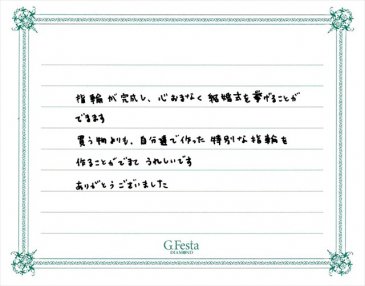 指輪が完成し、心おきなく結婚式を挙げることが
できます
買う物よりも、自分達で作った特別な指輪を
作ることができてうれしいです
ありがとうございました
G.Festa
DIAMOND